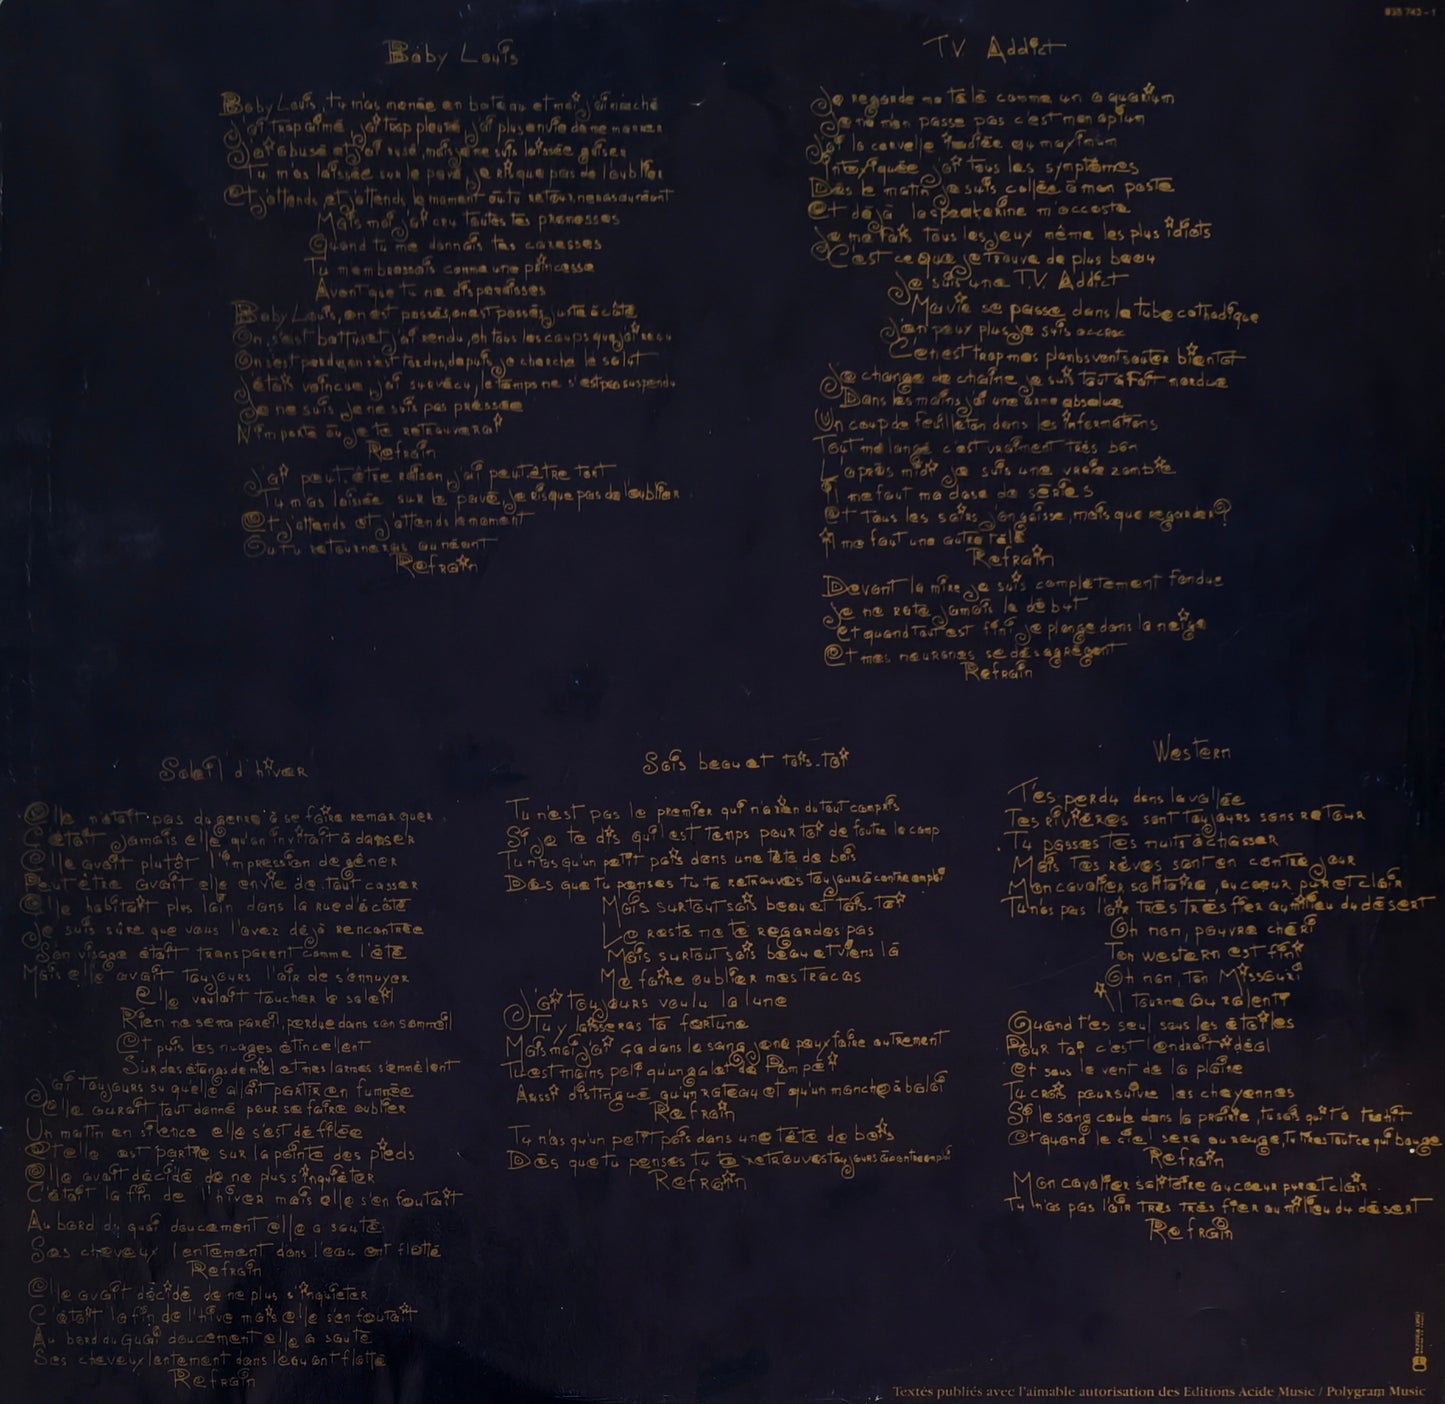 838 743 - 1
Baby Louis
Baby Louis, tu m'as menée en bateau et moi j'ai marché
J'ai trop aimé, j'ai trop pleuré, j'ai plus envie de me marrer
J'ai abusé et j'ai rusé, mais je me suis laissée griser
Tu m'as laissée sur le pavé, je risque pas de l'oublier
Et j'attends et j'attends le moment où tu retourneras au néant
Mais moi j'ai cru toutes tes promesses
Quand tu me donnais tes caresses
Tu m'embrassais comme une princesse
Avant que tu ne disparaisses
Baby Louis, on est passés, on est passés juste à côté
On s'est battus et j'ai rendu, oh tous les coups que j'ai reçu
On s'est perdu, on s'est tordus, depuis je cherche le salut
J'étais vaincue, j'ai survécu, le temps ne s'est pas suspendu
Je ne suis, je ne suis pas pressée
N'importe où je te retrouverai
Refrain
J'ai peut-être raison, j'ai peut-être tort
Tu m'as laissée sur le pavé, je risque pas de l'oublier
Et j'attends et j'attends le moment
Où tu retourneras au néant
Refrain
TV Addict
Je regarde ma télé comme un aquarium
Je ne m'en passe pas c'est mon opium
J'ai la cervelle irradiée au maximum
Intoxiquée j'ai tous les symptômes
Dès le matin je suis collée à mon poste
Et déjà la speakerine m'accoste
Je me fais tous les jeux même les plus idiots
C'est ce que je trouve de plus beau
Je suis une T.V. Addict
Ma vie se passe dans le tube cathodique
J'en peux plus je suis accroc
C'en est trop mes plombs vont sauter bientôt
Je change de chaîne je suis tout à fait mordue
Dans les mains j'ai une arme absolue
Un coup de feuilleton dans les informations
Tout mélangé c'est vraiment très bon
L'après midi je suis une vraie zombie
Il me faut ma dose de séries
Et tous les soirs j'angoisse, mais que regarder?
Il me faut une autre télé
Refrain
Devant la mire je suis complètement fondue
Je ne rate jamais le début
Et quand tout est fini je plonge dans la neige
Et mes neurones se désagrègent
Refrain
Soleil d'hiver
Elle n'était pas du genre à se faire remarquer
C'était jamais elle qu'on invitait à danser
Elle avait plutôt l'impression de gêner
Peut être avait elle envie de tout casser
Elle habitait plus loin dans la rue d'à côté
Je suis sûre que vous l'avez déjà rencontrée
Son visage était transparent comme l'été
Mais elle avait toujours l'air de s'ennuyer
Elle voulait toucher le soleil
Rien ne sera pareil, perdue dans son sommeil
Et puis les nuages étincellent
Sur des étangs de miel et mes larmes s'emmêlent
J'ai toujours su qu'elle allait partir en fumée
Elle aurait tout donné pour se faire oublier
Un matin en silence elle s'est défilée
Et elle est partie sur la pointe des pieds
Elle avait décidé de ne plus s'inquiéter
C'était la fin de l'hiver mais elle s'en foutait
Au bord du quai doucement elle a sauté
Ses cheveux lentement dans l'eau ont flotté
Refrain
Elle avait décidé de ne plus s'inquiéter
C'était la fin de l'hive mais elle s'en foutait
Au bord du quai doucement elle a sauté
Ses cheveux lentement dans l'eau ont flotté
Refrain
Sois beau et tais-toi
Tu n'est pas le premier qui n'a rien du tout compris
Si je te dis qu'il est temps pour toi de foutre le camp
Tu n'as qu'un petit pois dans une tête de bois
Dès que tu penses tu te retrouves toujours à contre emploi
Mais surtout sois beau et tais-toi
Le reste ne te regardes pas
Mais surtout sois beau et viens là
Me faire oublier mes tracas
J'ai toujours voulu la lune
Tu y laisseras ta fortune
Mais moi j'ai ça dans le sang je ne peux faire autrement
Tu est moins poli qu'un galet de Pompéi
Aussi distingué qu'un rateau et qu'un manche à balai
Refrain
Tu n'as qu'un petit pois dans une tête de bois
Dès que tu penses tu te retrouves toujours à contre emploi
Refrain
Western
T'es perdu dans la vallée
Tes rivières sont toujours sans retour
Tu passes tes nuits à chasser
Mais tes rêves sont en contre jour
Mon cavalier solitaire, au coeur pur et clair
Tu n'as pas l'air très très fier au milieu du désert
Oh non, pauvre chéri
Ton western est fini
Oh non, ton Missouri
Il tourne au ralenti
Quand t'es seul sous les étoiles
Pour toi c'est l'endroit idéal
Et sous le vent de la plaine
Tu crois poursuivre les cheyennes
Si le sang coule dans la prairie, tu sais qui t'a trahit
Et quand le ciel sera au rouge, tu tires tout ce qui bouge
Refrain
Mon cavalier solitaire au coeur pur et clair
Tu n'as pas l'air très très fier au milieu du désert
Refrain
Textes publiés avec l'aimable autorisation des Editions Acide Music / Polygram Music